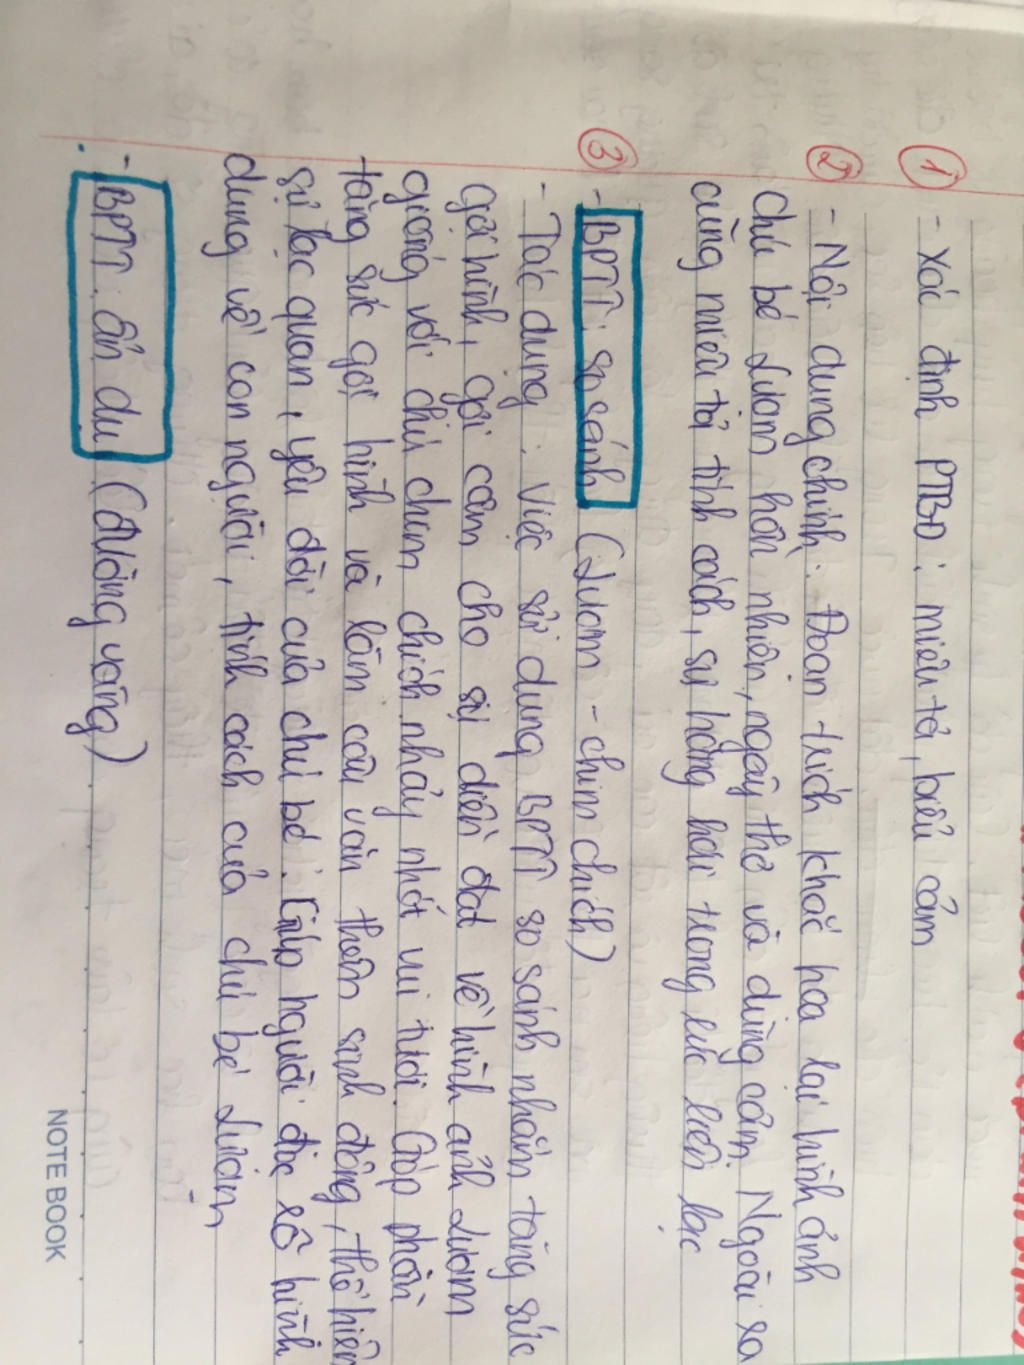 ① - Xác định PTBĐ: miêu tả, biểu cảm
② - Nội dung chính: Đoạn trích khắc hoạ lại hình ảnh
chú bé Lượm hồn nhiên, ngây thơ và dũng cảm. Ngoài ra
cũng miêu tả tính cách, sự hăng hái trong lúc liên lạc
③ - BPTT: so sánh (Lượm - chim chích)
- Tác dụng: Việc sử dụng BPTT so sánh nhằm tăng sức
gợi hình, gợi cảm cho sự diễn đạt về hình ảnh Lượm
giống với chú chim chích nhảy nhót vui tươi. Góp phần
tăng sức gợi hình và làm câu văn thêm sinh động, thể hiện
sự lạc quan, yêu đời của chú bé. Giúp người đọc rõ hình
dung về con người, tính cách của chú bé Lượm
- BPTT: ẩn dụ (đường vàng)
NOTE BOOK